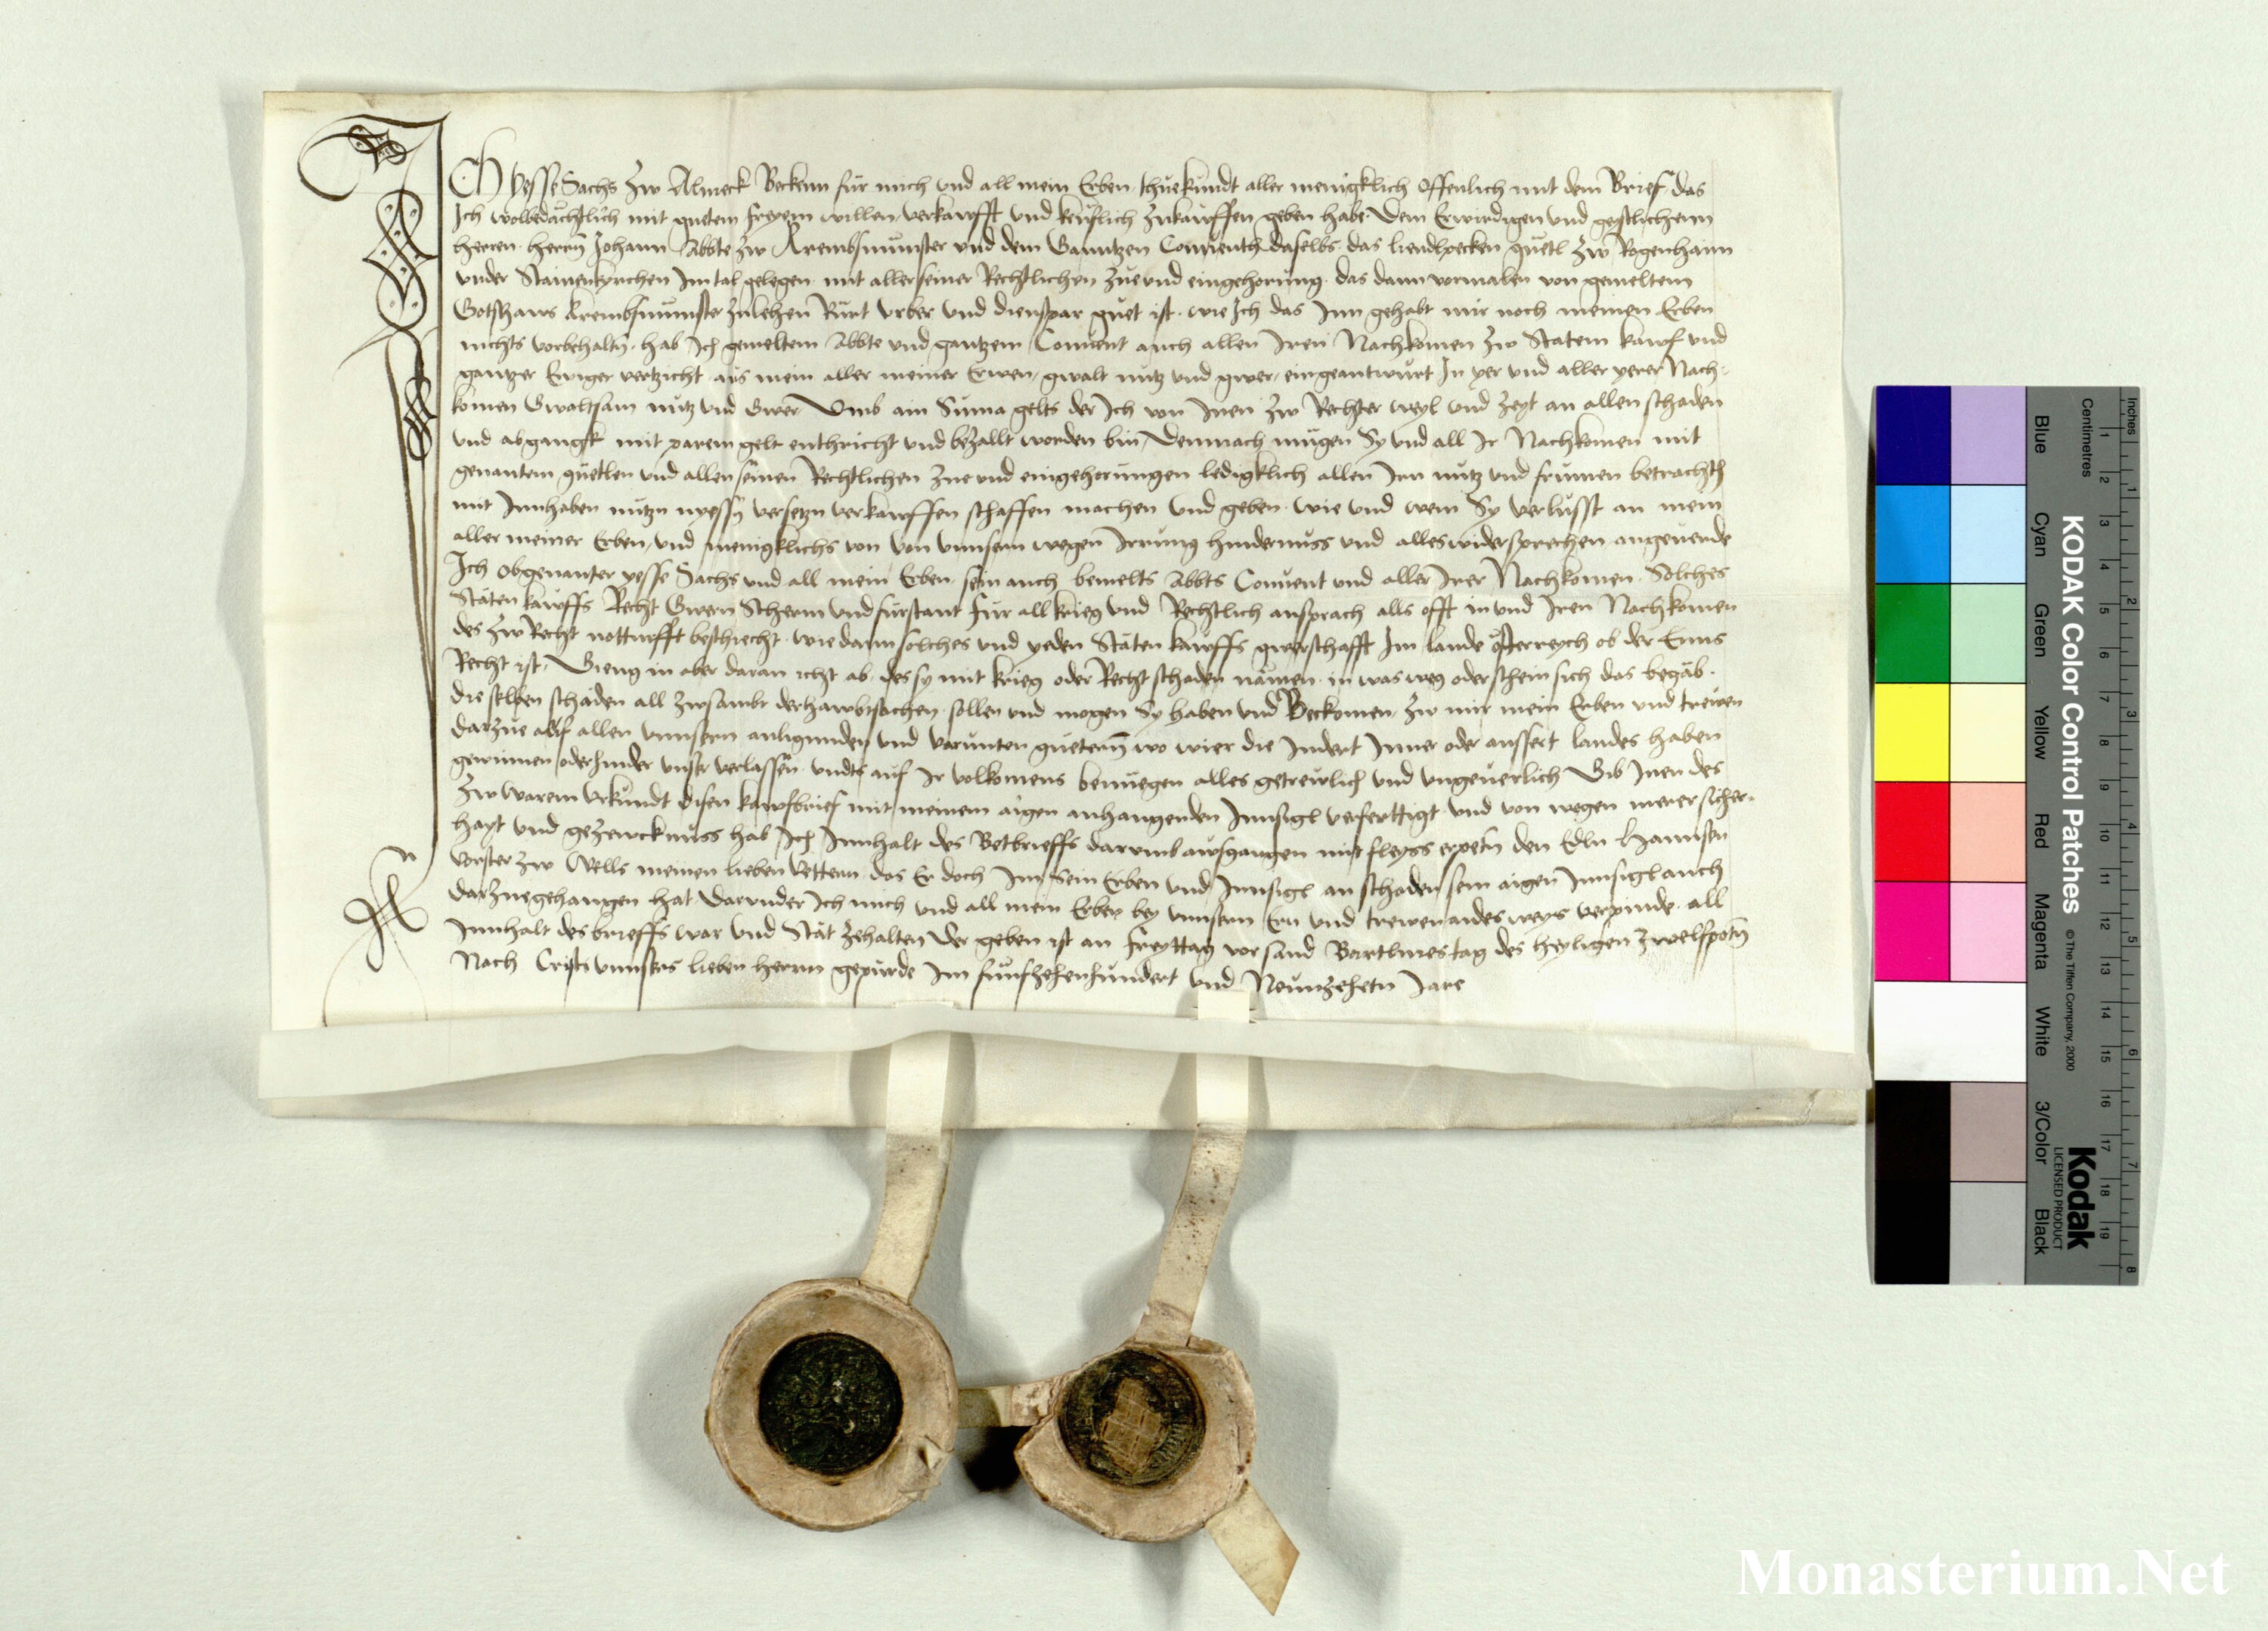 ICh yesse Sachs zw Almeck Bekenn für mich und all mein Erben thuekundt aller menigklich offenlich mit dem Brief das
Ich wolbedachtlich mit guetem freyem willen verkawfft und keuflich zukauffen geben habe Dem Erwirdigen und geystlichenn
herren herrn Johann Abbte zw Krembsmunster und dem Ganntzen Conventh daselbs das liendlpecken guetl zw Rogenhaim
under Stainenkyrchen Im tal gelegen mit aller seiner Rechtlichen zue und eingehorung das dann vormalen von gemeltem
Gotshaws Krembsmunster zulehen Rurt urber und dienspar guet ist wie Ich das Inn gehabt mir noch meinen Erben
nichts vorbehaltn hab Ich gemeltem Abbte und gantzem Convent auch allen Iren Nachkomen zw Statem kawf und
gantzer Ewiger vertzicht aus mein aller meiner Erben gwalt nutz und gwer eingeantwurt In yer und aller yerer Nach-
komen Gwaltsam nutz und Gwer Umb ain Suma gelts der Ich von Inen zw Rechter weyl und zeyt an allen schaden
und abgangk mit parem gelt enthricht und bezallt worden bin Demnach mugen Sy und all Ir Nachkomen mit
genantem guetlen und allen seinen Rechtlichen zue und eingehorungen ledigklich allen Irn nutz und frumen betrachtn
mit Innhaben nutzn nyessn versetzn verkawffen schaffen machen und geben wie und wem Sy verlusst an mein
aller meiner Erben und menigklichs von von unnsern wegen Irrung hindernuss und alles widersprechen angeuerde
Ich obgenanter yesse Sachs und all mein Erben sein auch bemelts Abbts Convent und aller Irer Nachkomen Solches
Stäten kawffs Recht Gwern Scherm und furstant fur all krieg und Rechtlich ansprach alls offt in und Iren Nachkomen
des zw Recht notturfft beschiecht wie dann solches und yeden Stäten kawffs gwerschafft Im lande osterreych ob der Enns
Recht ist Gieng in aber daran icht ab des sy mit krieg oder Recht schaden nämen in was weg oder schein sich das begäb
die selben schäden all zwsambt der hawbtsachen sollen und mogen Sy haben und Bekomen zw mir mein Erben und trewen
darzue auf allen unnsern anligunden und varunten guetern wo wier die Indert Inner oder aussert landes haben
gewinnen oder hinder unser verlassen untz auf Ir volkomens benuegen alles getrewlich und ungeuerlich Gib Inen des
zw warem urkundt disen kawfbrief mit meinem aigen anhangenden Innsigl verferttigt und von wegen merer sicher-
hayt und gezewcknuss hab Ich Innhalt des Betbrieffs darumb awsgangen mit fleyss erpetn den Edln Hannsen
Vorster zw Wells meinen lieben Vettern das Er doch Im sein Erben und Innsigl an schaden sein aigen Innsigl auch
darzuegehangen hat Darunder Ich mich und all mein Erben bey unnsern Ern und trewen andes weys verpinde all
Innhalt des brieffs war und Stät zehalten Der geben ist an freyttag vor sand Bartlmes tag des heyligen zwelfpotn
Nach Cristi unnsers lieben herrn gepurde Im funfzehenhundert und Neunzehetn Jare
KODAK Color Control Patches © The Tiffen Company, 2000
Kodak
LICENSED PRODUCT
Blue Cyan Green Yellow Red Magenta White 3/Color Black
Centimetres
1 2 3 4 5 6 7 8 9 10 11 12 13 14 15 16 17 18 19
Inches
1 2 3 4 5 6 7 8
Monasterium.Net